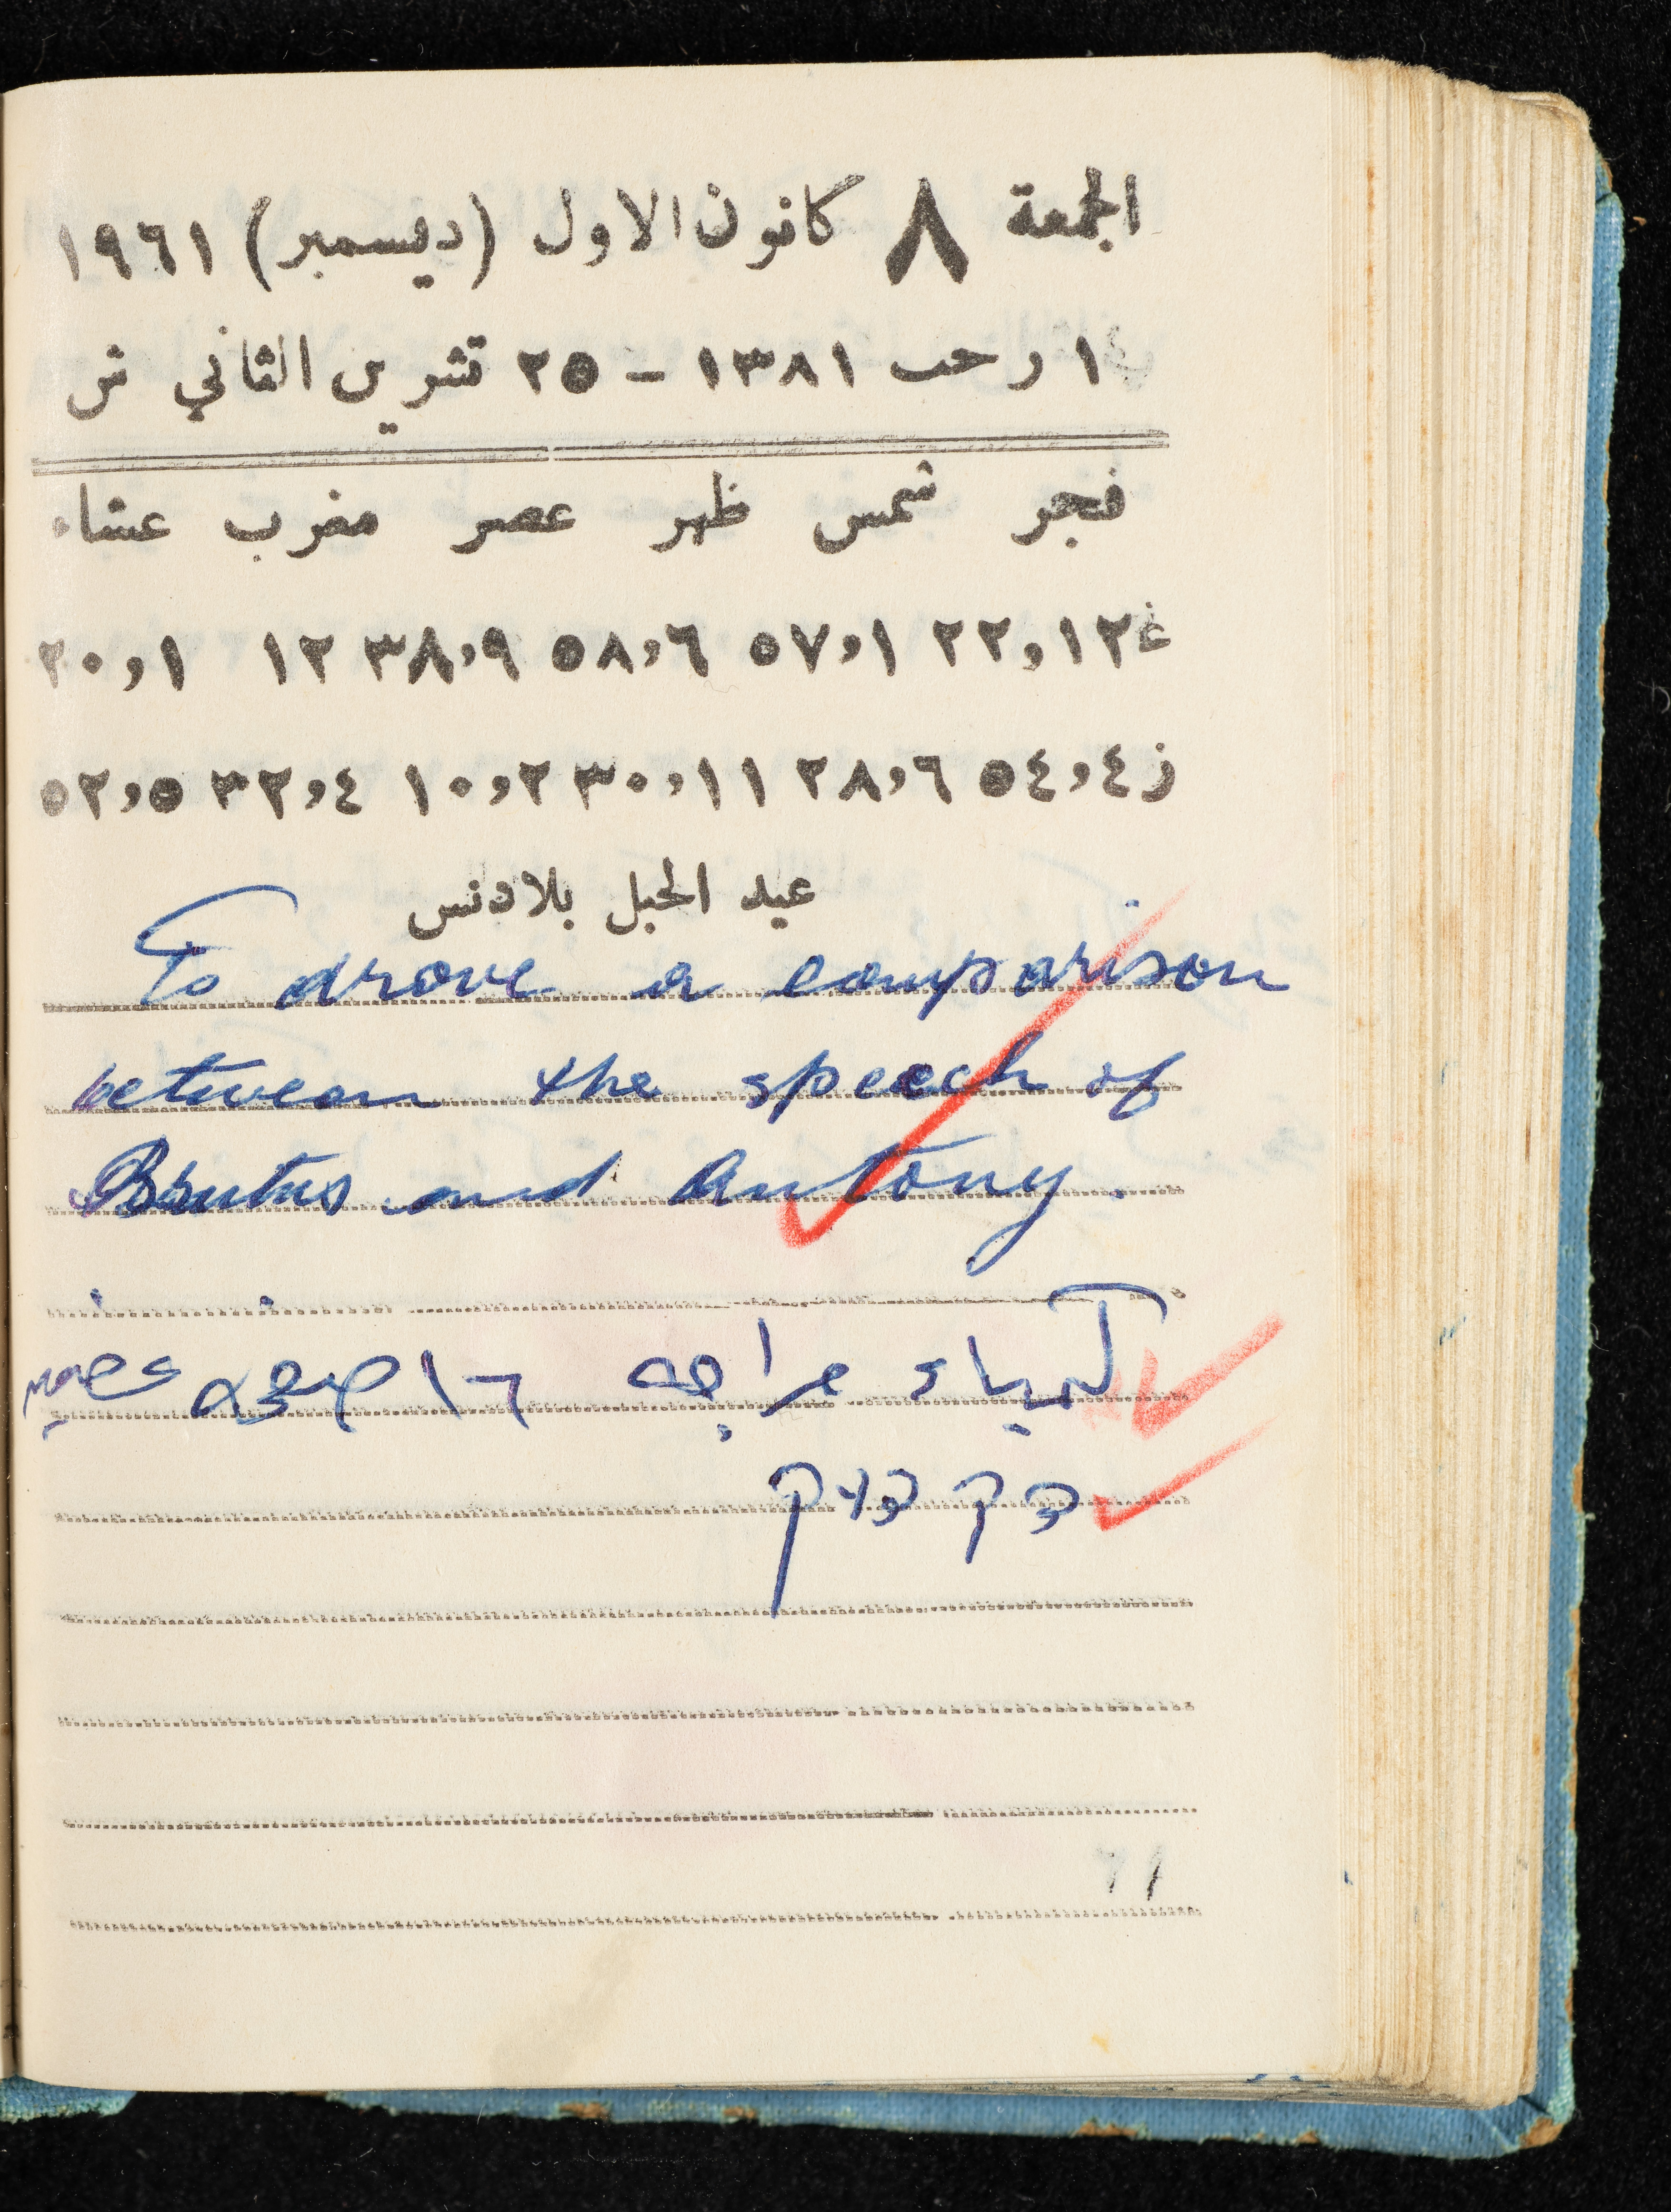 الجمعة ٨ كانون الاول (ديسمبر) ١٩٦١
١ رجب ١٣٨١ - ٢٥ تشرين الثاني ش
فجر شمس ظهر عصر مغرب عشاء
غ ١٢,٢٢ ١,٥٧ ٦,٥٨ ٩,٣٨ ١٢ ١,٢٠
ز ٤,٥٤ ٦,٢٨ ١١,٣٠ ٢,١٠ ٤,٣٢ ٥,٥٢
عيد الحبل بلادنس
To drove a comparison
between the speech of
Brutus and Antony.
كيمياء مراجعه ١٦ صفحه